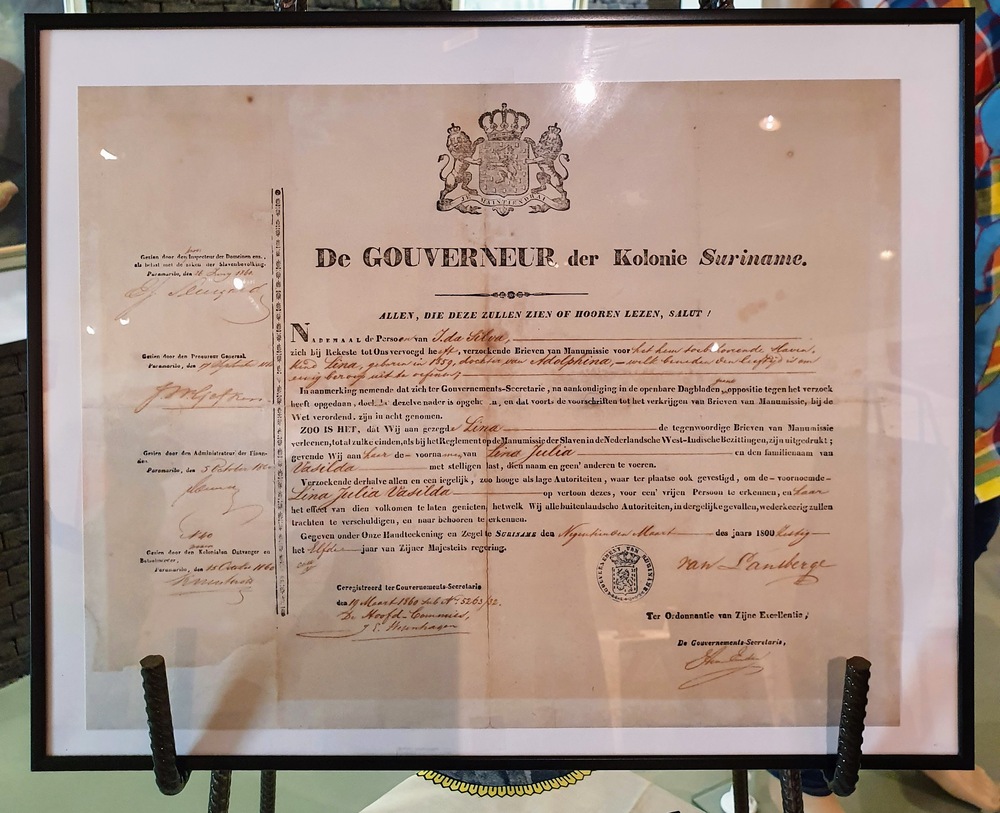 JE MAINTIENDRAI
De GOUVERNEUR der Kolonie Suriname.
ALLEN, DIE DEZE ZULLEN ZIEN OF HOOREN LEZEN, SALUT!
NADEMAAL de Persoon van I. da Silva,
zich bij Rekeste tot Ons vervoegd heeft, verzoekende Brieven van Manumissie voor het hem toebehoorende slaven
kind Lina, geboren in 1859, dochter van Adolphina, welk beneden den leeftijd is om
eenig beroep uit te oefenen;
In aanmerking nemende dat zich ter Gouvernements-Secretarie, na aankondiging in de openbare Dagbladen geene oppositie tegen het verzoek
heeft opgedaan, dezelve nader is opgeheven, en dat voorts de voorschriften tot het verkrijgen van Brieven van Manumissie, bij de
Wet verordend, zijn in acht genomen.
ZOO IS HET, dat Wij aan gezegde Lina de tegenwoordige Brieven van Manumissie
verleenen, tot al zulke einden, als bij het Reglement op de Manumissie der Slaven in de Nederlandsche West-Indische Bezittingen, zijn uitgedrukt;
gevende Wij aan haar de voornamen van Lina Julia en den familienaam van
Vasilda met stelligen last, dien naam en geen' anderen te voeren.
Verzoekende derhalve allen en een iegelijk, zoo hooge als lage Autoriteiten, waar ter plaatse ook gevestigd, om de voornoemde
Lina Julia Vasilda op vertoon dezes, voor een' vrijen Persoon te erkennen, en haar
het effect van dien volkomen te laten genieten, hetwelk Wij alle buitenlandsche Autoriteiten, in dergelijke gevallen, wederkeerig zullen
trachten te verschuldigen, en naar behooren te erkennen.
Gegeven onder Onze Handteekening en Zegel te SURINAME den Negentienden Maart des jaars 1800 zestig
het Elfde jaar van Zijner Majesteits regering.
van Lansberge
Geregistreerd ter Gouvernements-Secretarie
den 19 Maart 1860 sub No. 5263/32.
De Hoofd-Commies,
Ter Ordonnantie van Zijne Excellentie,
De Gouvernements-Secretaris,
Gezien door den Inspecteur der Domeinen enz.,
als belast met de zaken der Slavenbevolking.
Paramaribo, den 26 Juny 1860
Gezien door den Procureur Generaal.
Paramaribo, den 17 September 1860
Gezien door den Administrateur der Finan-
cien.
Paramaribo, den 5 October 1860
Gezien door den Kolonialen Ontvanger en
Betaalmeester,
Paramaribo, den October 1860